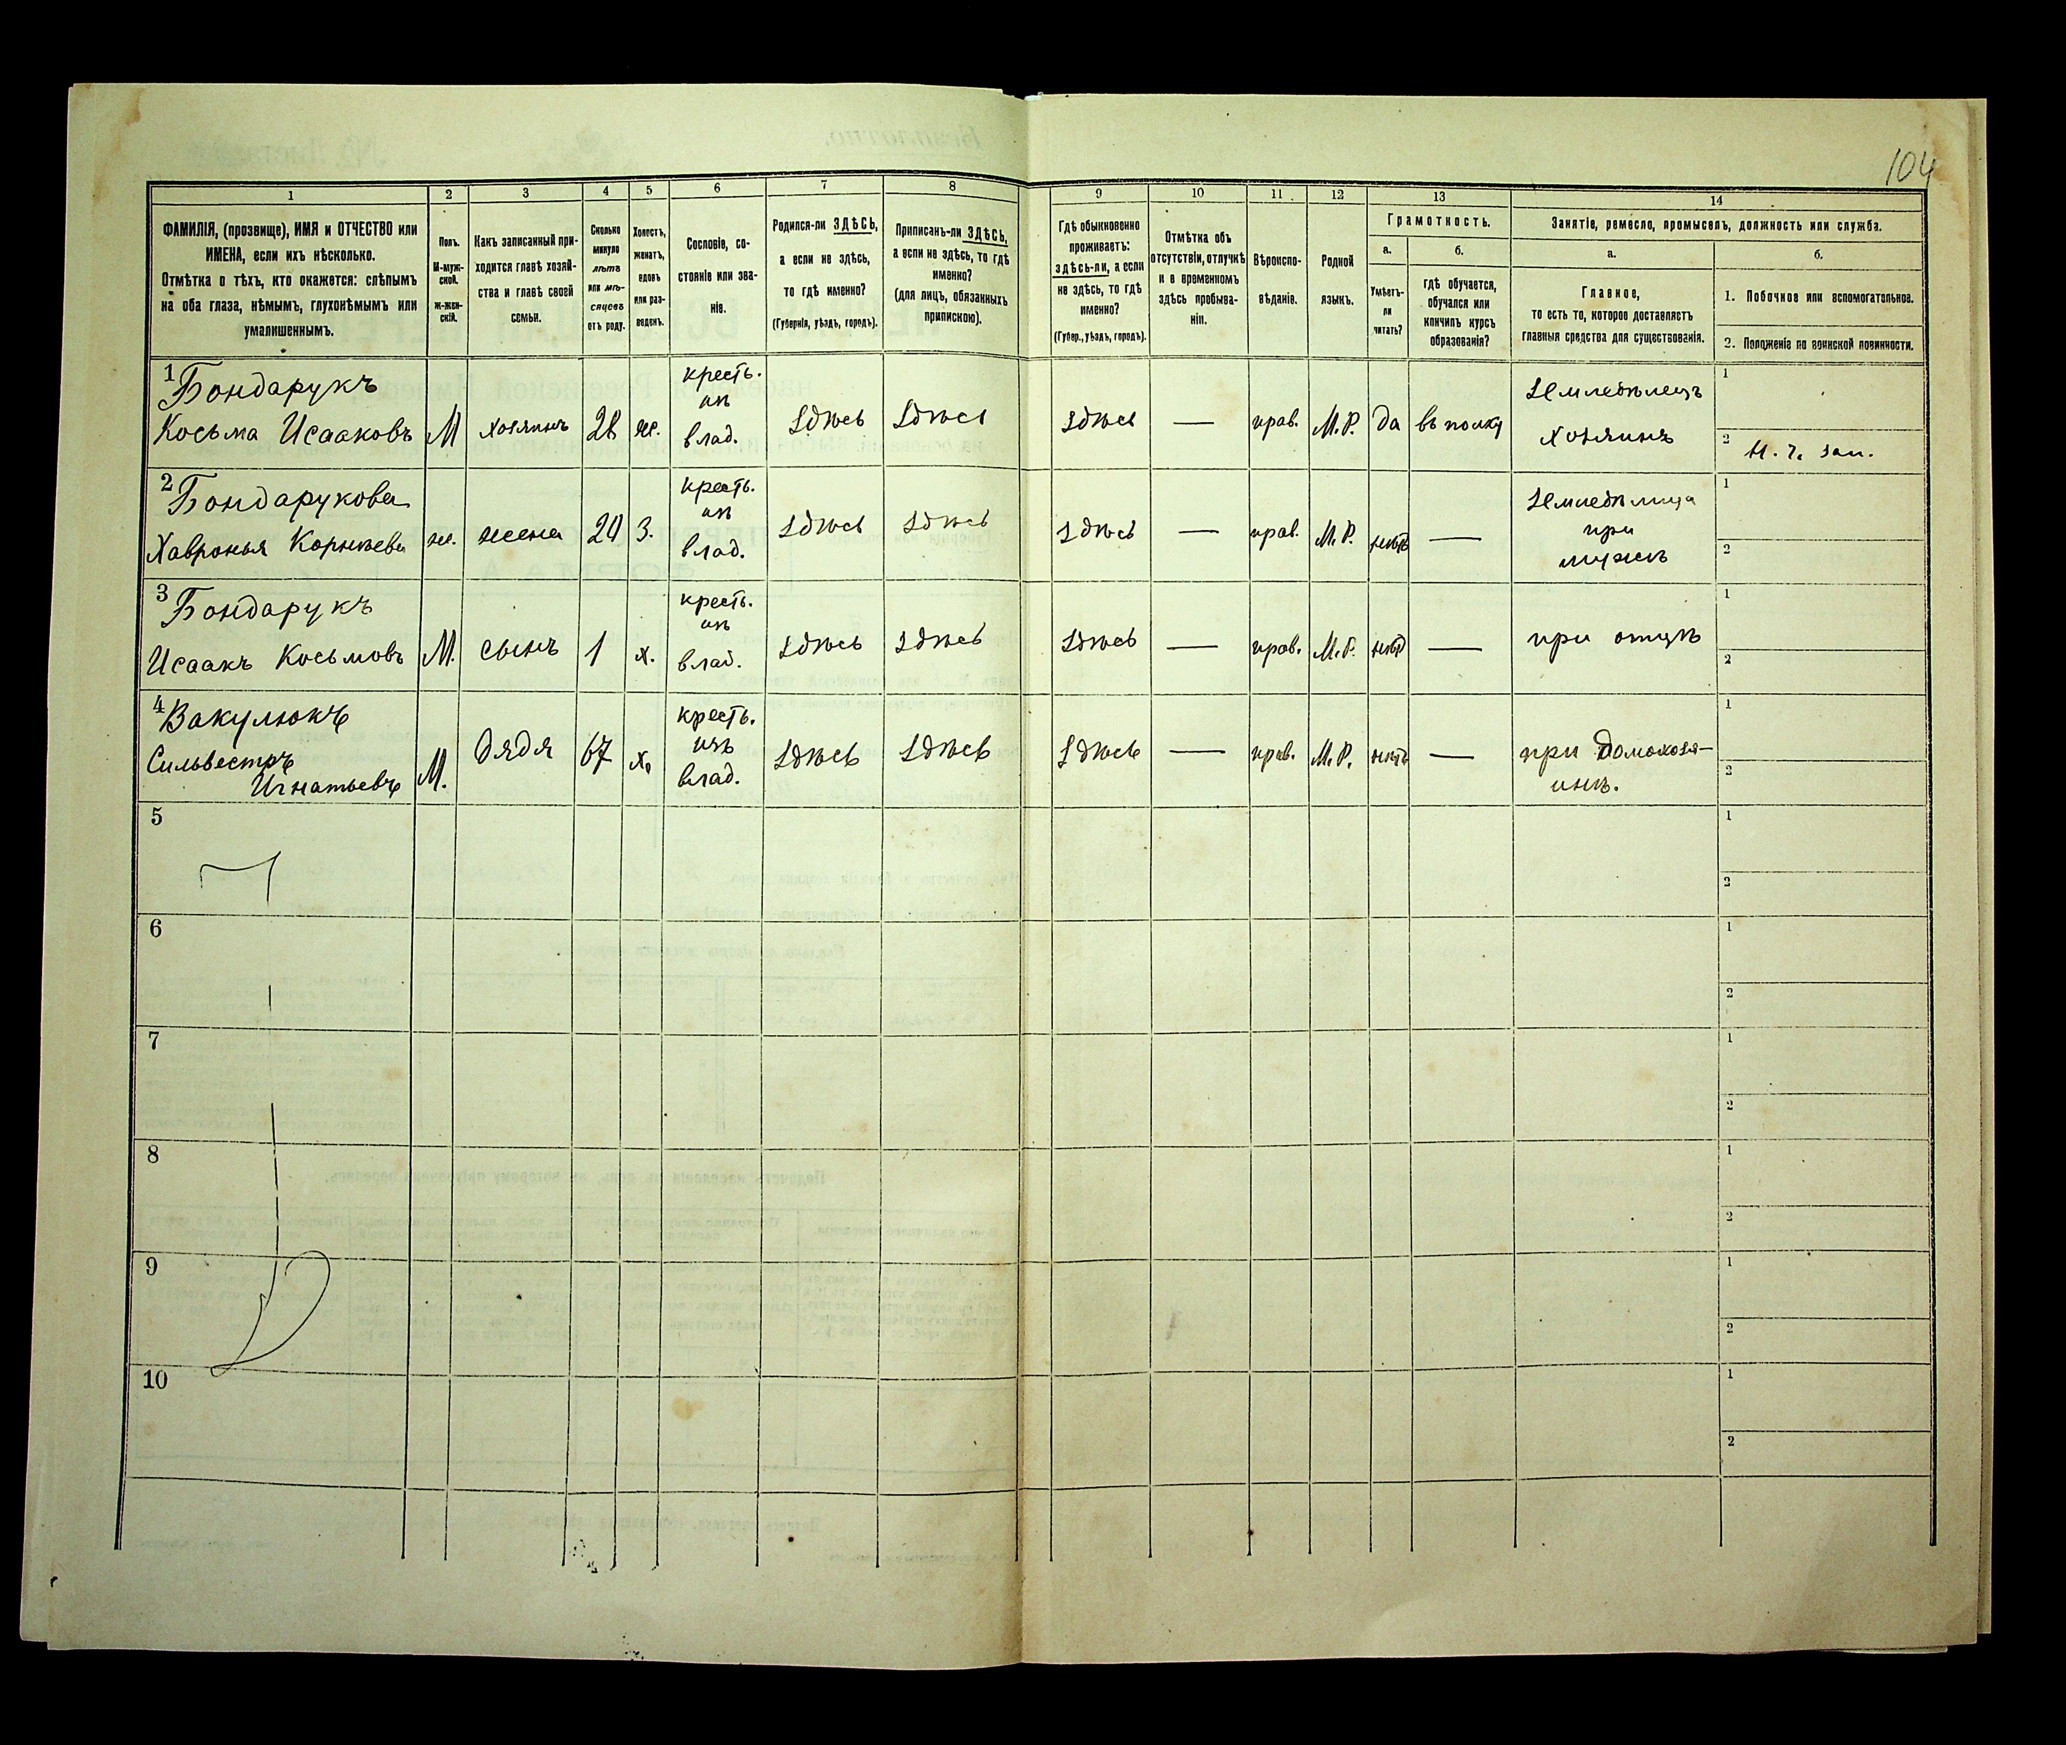 104
1
2
3
4
5
6
7
8
9
10
11
12
13
14
ФАМИЛІЯ, (прозвище), ИМЯ и ОТЧЕСТВО или
ИМЕНА, если ихъ нѣсколько.
Отмѣтка о тѣхъ, кто окажется: слѣпымъ
на оба глаза, нѣмымъ, глухонѣмымъ или
умалишеннымъ.
Полъ.
М-муж-
ской.
ж-жен-
скій.
Какъ записанный при-
ходится главѣ хозяй-
ства и главѣ своей
семьи.
Сколько
минуло
лѣтъ
или мѣ-
сяцевъ
отъ роду.
Холостъ,
женатъ,
вдовъ
или раз-
веденъ.
Сословіе, со-
стояніе или зва-
ніе.
Родился-ли ЗДѢСЬ,
а если не здѣсь,
то гдѣ именно?
(Губернія, уѣздъ, городъ).
Приписанъ-ли ЗДѢСЬ,
а если не здѣсь, то гдѣ
именно?
(для лицъ, обязанныхъ
припискою).
Гдѣ обыкновенно
проживаетъ:
здѣсь-ли, а если
не здѣсь, то гдѣ
именно?
(Губер., уѣздъ, городъ).
Отмѣтка объ
отсутствіи, отлучкѣ
и о временномъ
здѣсь пребыва-
ніи.
Вѣроиспо-
вѣданіе.
Родной
языкъ.
Грамотность.
а.
Умѣетъ-
ли
читать?
б.
гдѣ обучается,
обучался или
кончилъ курсъ
образованія?
Занятіе, ремесло, промыселъ, должность или служба.
а.
Главное,
то есть то, которое доставляетъ
главныя средства для существованія.
б.
1. Побочное или вспомогательное.
2. Положеніе по воинской повинности.
1 Бондарукъ
Косьма Исааковъ
М
хозяинъ
28
ж.
кресть.
изъ
влад.
здѣсь
здѣсь
здѣсь
—
прав.
М.Р.
да
въ полку
Земледѣлецъ
хозяинъ
1
2
Н. ч. зап.
2 Бондарукова
Хавронья Корнѣева
ж.
жена
24
З.
кресть.
изъ
влад.
здѣсь
здѣсь
здѣсь
—
прав.
М.Р.
нѣтъ
—
Земледѣлица
при
мужѣ
1
2
3 Бондарукъ
Исаакъ Косьмовъ
М.
сынъ
1
х.
кресть.
изъ
влад.
здѣсь
здѣсь
здѣсь
—
прав.
М.Р.
нѣтъ
—
при отцѣ
1
2
4 Вакулюкъ
Сильвестръ
Игнатьевъ
М.
дядя
67
х.
кресть.
изъ
влад.
здѣсь
здѣсь
здѣсь
—
прав.
М.Р.
нѣтъ
—
при домохозя-
инѣ.
1
2
5
1
2
6
1
2
7
1
2
8
1
2
9
1
2
10
1
2